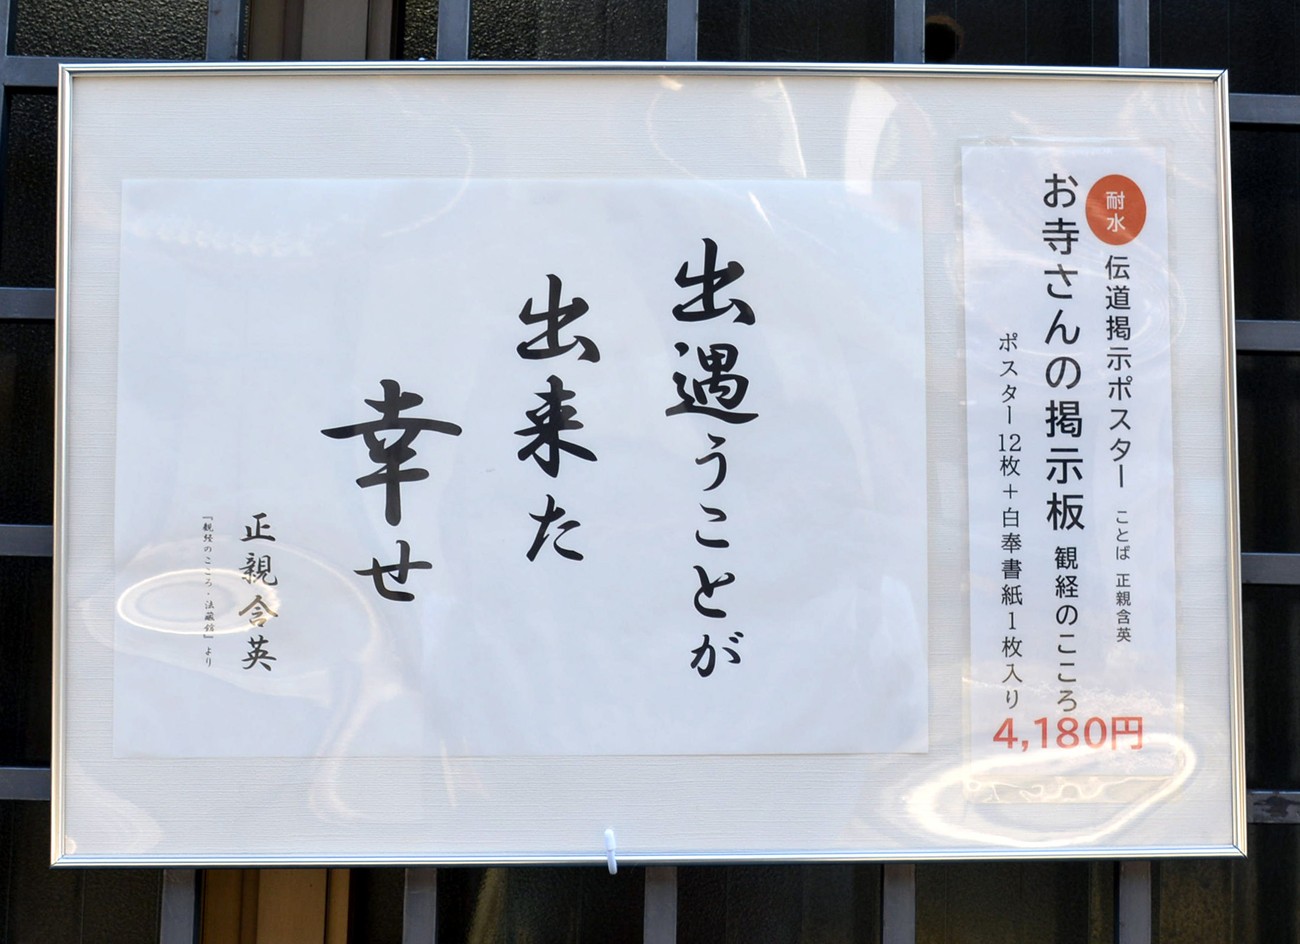 耐水
伝道掲示ポスター ことば 正親含英
お寺さんの掲示板 観経のこころ
ポスター12枚＋白奉書紙1枚入り
4,180円
出遇うことが
出来た
幸せ
正親含英
『観経のこころ・法蔵館』より